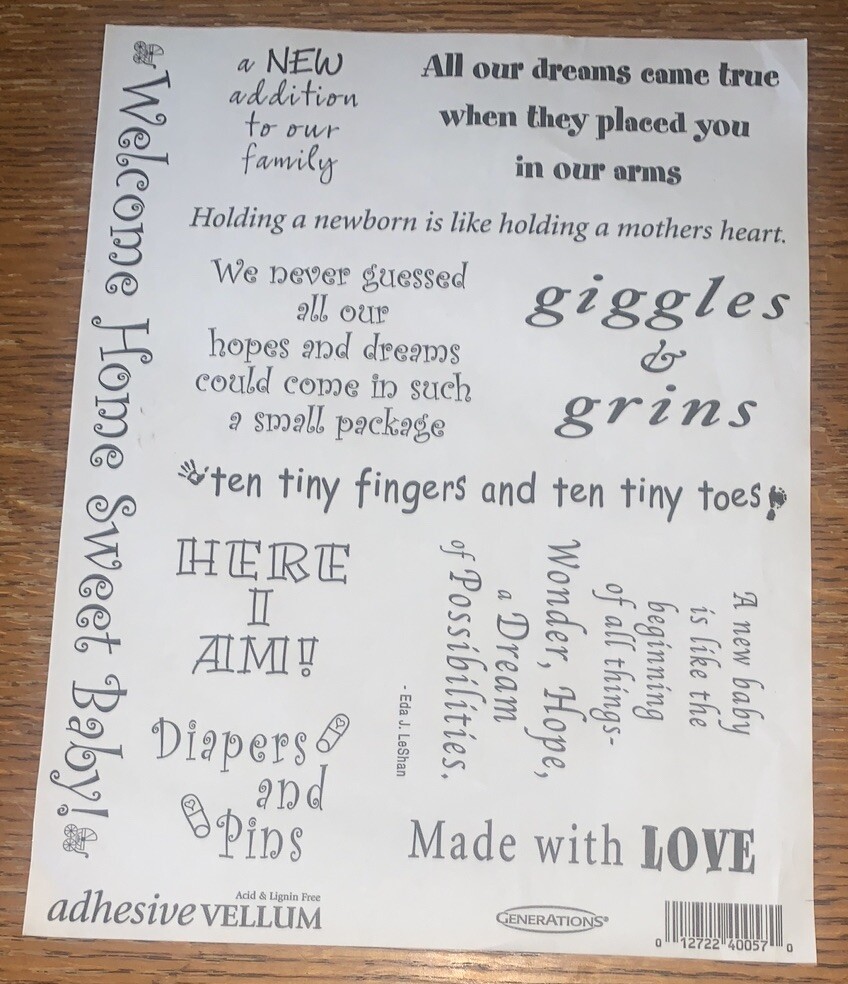 Welcome Home Sweet Baby!
a NEW
addition
to our
family
All our dreams came true
when they placed you
in our arms
Holding a newborn is like holding a mothers heart.
We never guessed
all our
hopes and dreams
could come in such
a small package
giggles
&
grins
ten tiny fingers and ten tiny toes
HERE
I
AM!
A new baby
is like the
beginning
of all things-
Wonder, Hope,
a Dream
of Possibilities.
- Eda J. LeShan
Diapers
and
Pins
Made with LOVE
Acid & Lignin Free
adhesive VELLUM
GENERATIONS®
0 12722 40057 0